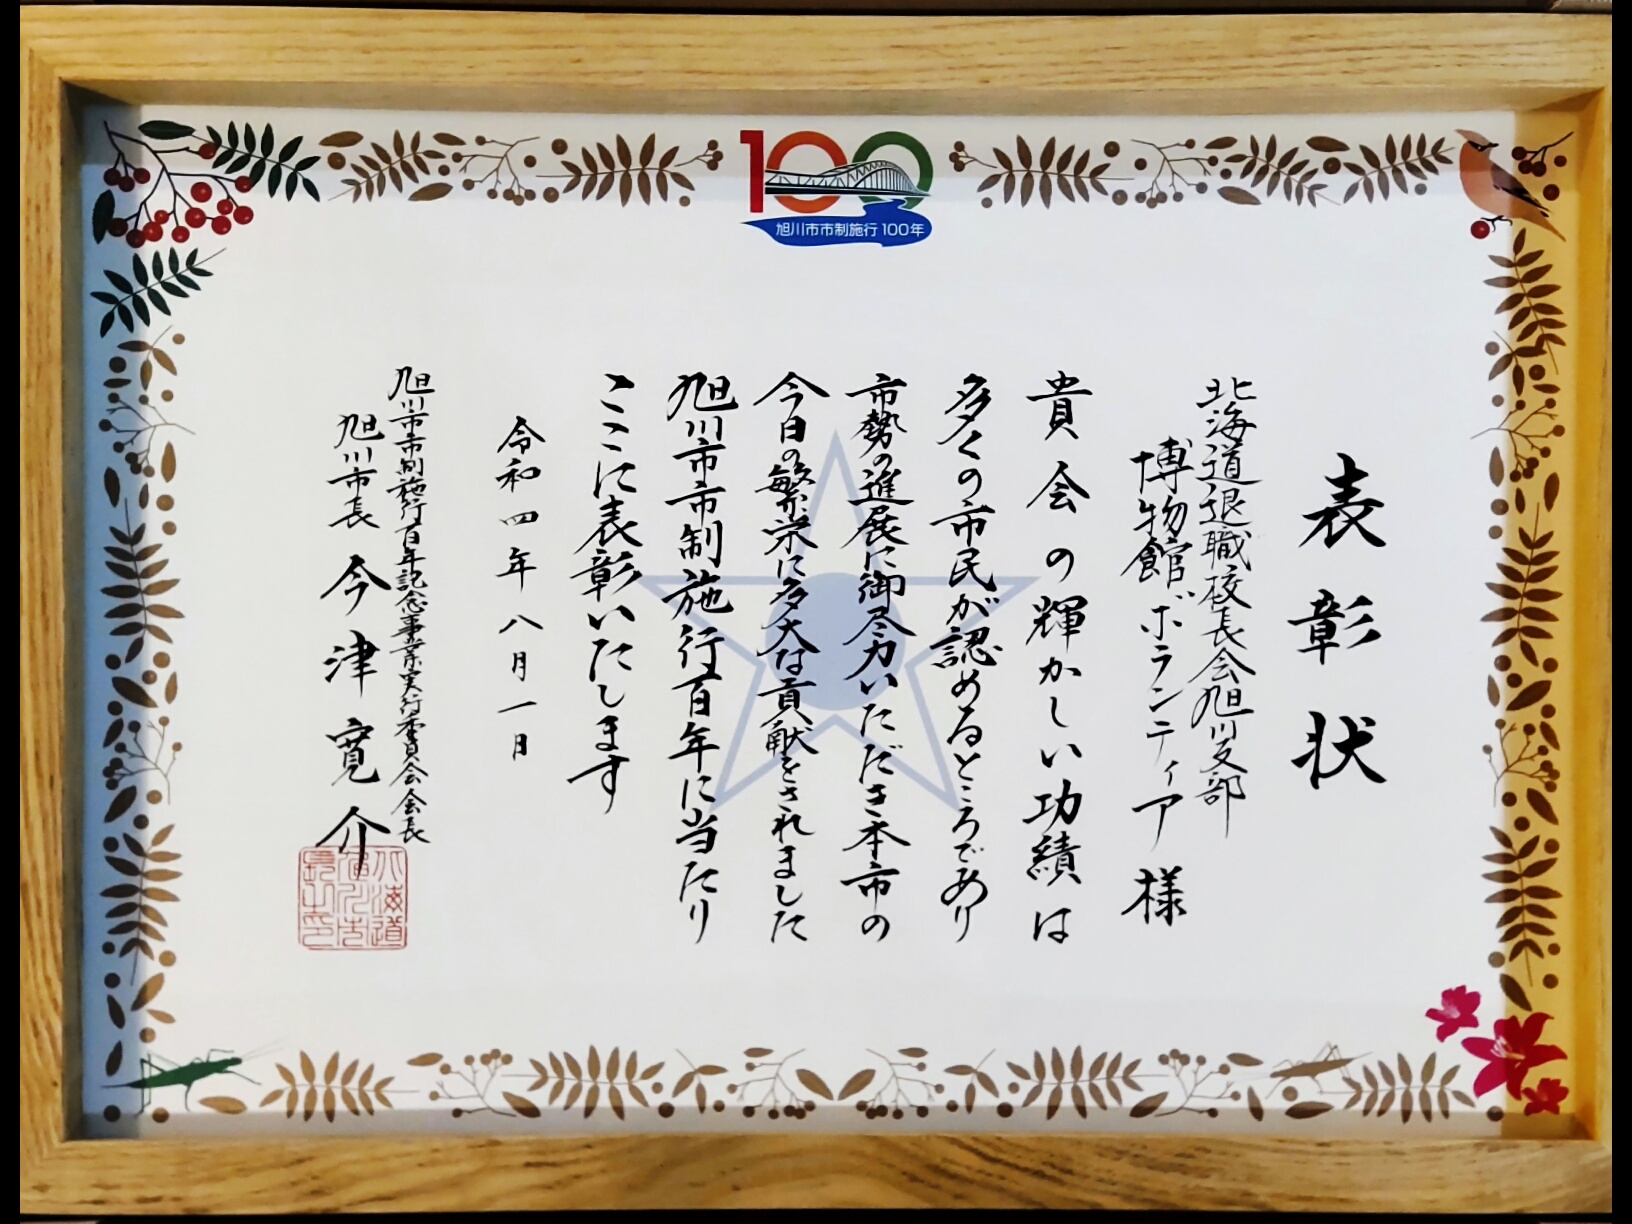 100
旭川市市制施行100年
表彰状
北海道退職校長会旭川支部
博物館ボランティア 様
貴会の輝かしい功績は
多くの市民が認めるところであり
市勢の進展に御尽力いただき本市の
今日の繁栄に多大な貢献をされました
旭川市市制施行百年に当たり
ここに表彰いたします
令和四年八月一日
旭川市市制施行百年記念事業実行委員会会長
旭川市長 今津寛介